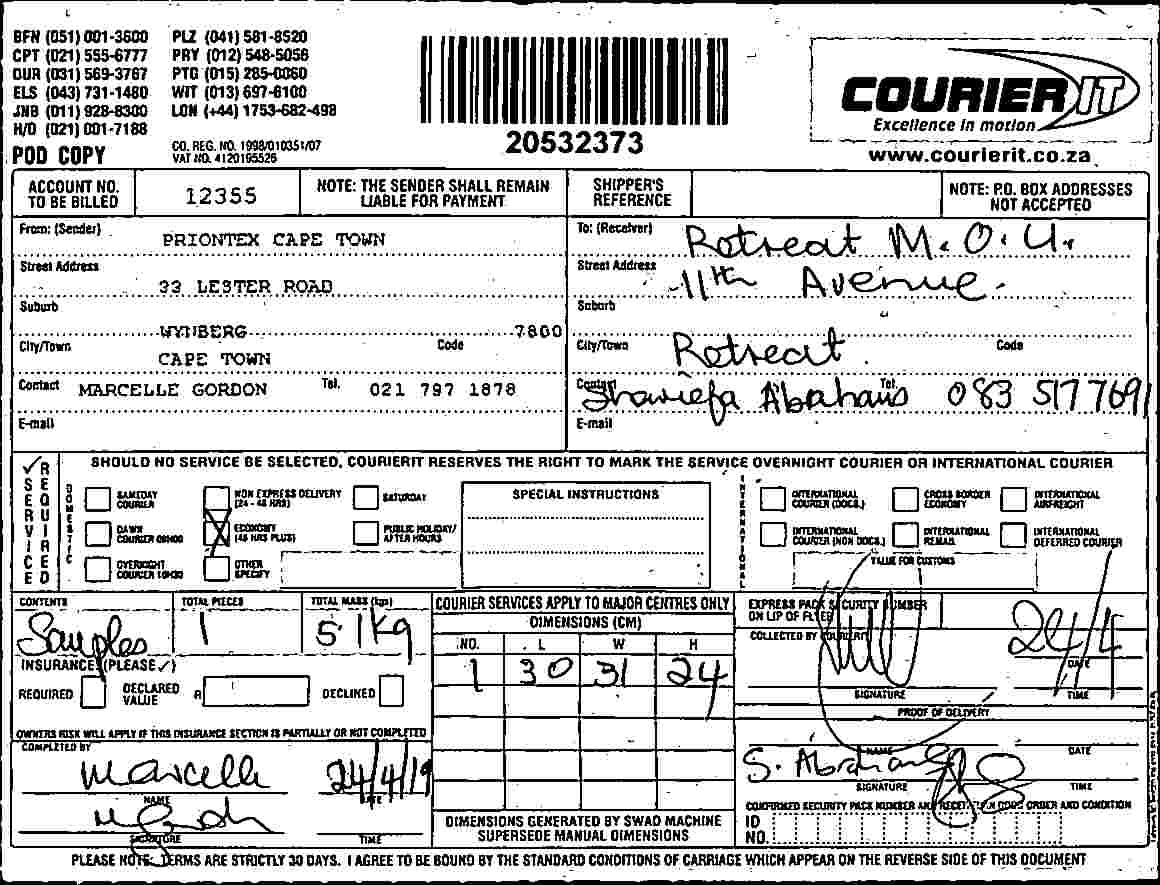 BFN (051) 001-3600 PLZ (041) 581-8520
CPT (021) 555-6777 PRY (012) 548-5056
DUR (031) 569-3767 PTG (015) 285-0060
ELS (043) 731-1480 WIT (013) 697-6100
JNB (011) 928-8300 LON (+44) 1753-682-498
H/O (021) 001-7188
POD COPY
CO. REG. NO. 1998/010351/07
VAT NO. 4120195526
20532373
COURIER IT
Excellence in motion
www.courierit.co.za
ACCOUNT NO. TO BE BILLED 12355
NOTE: THE SENDER SHALL REMAIN LIABLE FOR PAYMENT
SHIPPER'S REFERENCE
NOTE: P.O. BOX ADDRESSES NOT ACCEPTED
From: (Sender) PRIONTEX CAPE TOWN
Street Address 33 LESTER ROAD
Suburb WYNBERG 7800
City/Town CAPE TOWN Code
Contact MARCELLE GORDON Tel. 021 797 1878
E-mail
To: (Receiver) Retreat M.O.U.
Street Address 11th Avenue
Suburb
City/Town Retreat Code
Contact Shariefa Abrahams Tel. 083 517 7691
E-mail
✓ SERVICE REQUIRED
SHOULD NO SERVICE BE SELECTED, COURIERIT RESERVES THE RIGHT TO MARK THE SERVICE OVERNIGHT COURIER OR INTERNATIONAL COURIER
DOMESTIC
SAMEDAY COURIER
NON EXPRESS DELIVERY (24 - 48 HRS)
SATURDAY
DAWN COURIER 08H00
ECONOMY (48 HRS PLUS)
PUBLIC HOLIDAY/ AFTER HOURS
OVERNIGHT COURIER 10H30
OTHER SPECIFY
SPECIAL INSTRUCTIONS
INTERNATIONAL
INTERNATIONAL COURIER (DOCS.)
CROSS BORDER ECONOMY
INTERNATIONAL AIRFREIGHT
INTERNATIONAL COURIER (NON DOCS.)
INTERNATIONAL REMAIL
INTERNATIONAL DEFERRED COURIER
VALUE FOR CUSTOMS
CONTENTS Samples
TOTAL PIECES 1
TOTAL MASS (kgs) 5 1kg
INSURANCE: (PLEASE ✓)
REQUIRED
DECLARED VALUE R
DECLINED
OWNERS RISK WILL APPLY IF THIS INSURANCE SECTION IS PARTIALLY OR NOT COMPLETED
COMPLETED BY
Marcelle 24/4/19
NAME DATE
SIGNATURE TIME
COURIER SERVICES APPLY TO MAJOR CENTRES ONLY
DIMENSIONS (CM)
NO. L W H
1 30 31 24
DIMENSIONS GENERATED BY SWAD MACHINE
SUPERSEDE MANUAL DIMENSIONS
EXPRESS PACK SECURITY NUMBER
ON LIP OF FLYER
COLLECTED BY COURIERIT
24/4
DATE
SIGNATURE TIME
PROOF OF DELIVERY
NAME DATE
S. Abrahams
SIGNATURE TIME
CONFIRMED SECURITY PACK NUMBER AND RECEIPT IN GOOD ORDER AND CONDITION
ID NO.
PLEASE NOTE: TERMS ARE STRICTLY 30 DAYS. I AGREE TO BE BOUND BY THE STANDARD CONDITIONS OF CARRIAGE WHICH APPEAR ON THE REVERSE SIDE OF THIS DOCUMENT